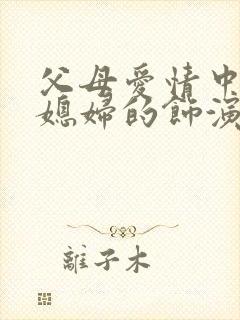 父母爱情中
媳婦的飾演
離子木